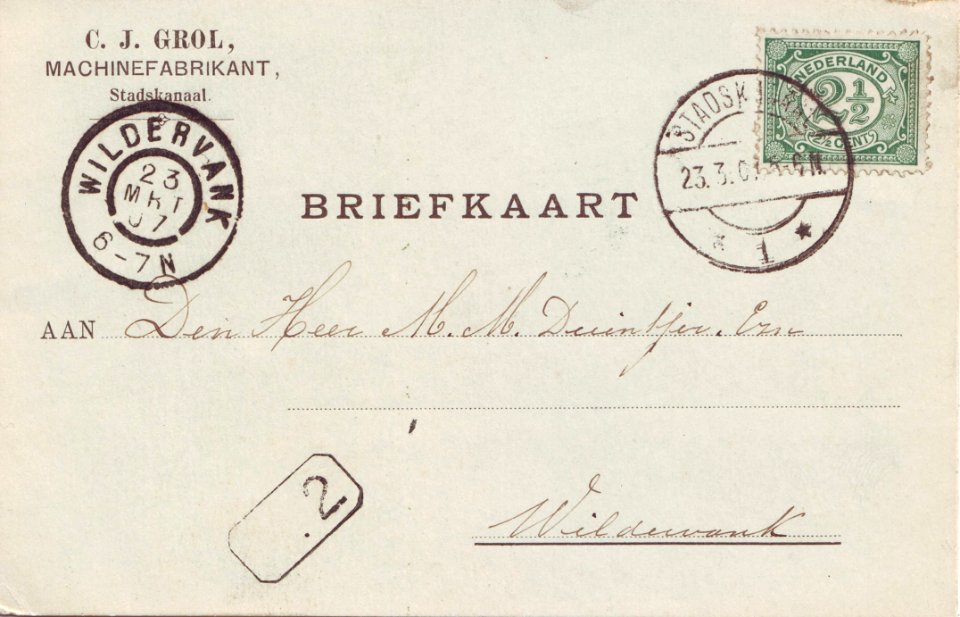 C. J. GROL,
MACHINEFABRIKANT,
Stadskanaal.
NEDERLAND
2½
2½ CENT
STADSK
23.3.07 5-6N
1
WILDERVANK
23
MRT
07
6-7N
BRIEFKAART
AAN Den Heer M. M. Duintjer. Ezn
2
Wildervank